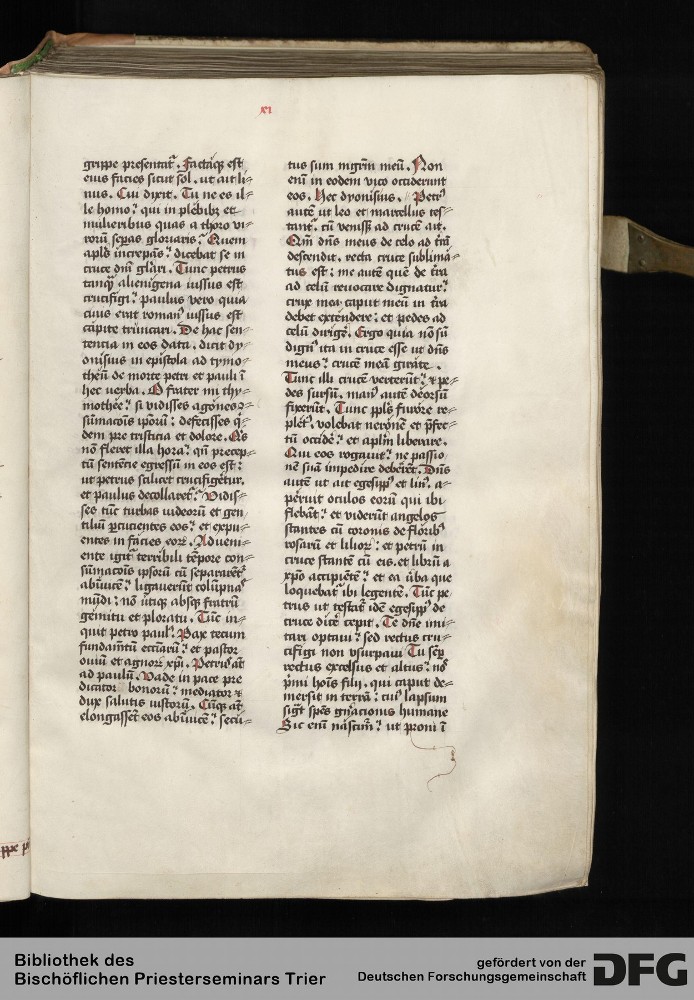 xi
grippe presentat᷑. Factaq3 est
eius facies sicut sol. ut ait li-
nus. Cui dixit. Tu ne es il-
le homo? qui in plebib3 et
mulieribus quas a thoro vi-
rorū sepas gloriaris? Quem
apl̄s increpās? dicebat se in
cruce dn̄i gl̄ari. Tunc petrus
tanq̄ alienigena iussus est
crucifigi? paulus vero quia
ciuis erat roman᷒ iussus est
capite truncari. De hac sen-
tencia in eos data. dicit dy-
onisius in epistola ad tymo-
theū de morte petri et pauli ī
hec uerba. O frater mi thy-
mothee? si vidisses agones
sūmacōis ip̄orū? defecisses q̄-
dem pre tristicia et dolore. Q̄s
nō fleret illa hora? qn̄ precep-
tū sentēcie egressū in eos est?
ut petrus scilicet crucifigēt᷑.
et paulus decollaret᷑? Vidis-
ses tūc turbas iudeorū et gen
tiliū ꝑcucientes eos? et expu-
entes in facies eoꝝ. Adueni-
ente igit᷑ terribili tēpore con-
sūmacōis ip̄sorū cū separarēt᷑
abīuicē? ligauerūt colūpnā
mūdi? nō utiq3 absq3 fratrū
gemitu et ploratu. Tūc in-
quit petro paul᷒. Pax tecum
fundamtū ecc̄iarū? et pastor
ouiū et agnoꝝ xp̄i. Petrus at̄
ad paulū. Vade in pace pre
dicator bonorū? mediator et
dux salutis iustorū. Cūq3 at̄
elongassēt eos abīuicē? secu-
tus sum mgr̄m meū. Non
enī in eodem vico occiderunt
eos. Hec dyonisius. Petr᷒
autē ut leo et marcellus tes-
tant᷑. cū veniss3 ad crucē ait.
Qm̄ dn̄s meus de celo ad t̄rā
descendit. recta cruce sublima-
tus est? me autē quē de t̄ra
ad celū reuocare dignatur?
crux mea caput meū in t̄ra
debet extendere? et pedes ad
celū dirige᷑. Ergo quia nō sū
dign᷒ ita in cruce esse ut dn̄s
meus? crucē meā girate.
Tunc illi crucē verterūt? et pe-
des sursū. man᷒ autē deorsū
fixerūt. Tunc pp̄ls furore re-
plet᷒. volebat neronē et p̄fec-
tū occide᷑? et aplm̄ liberare.
Qui eos rogauit? ne passio-
nē suā impedire deberēt. Dn̄s
autē ut ait egesipp᷒ et lin᷒. a-
peruit oculos eorū qui ibi
flebāt? et viderūt angelos
stantes cū coronis de florib᷒
rosarū et lilioꝝ? et petrū in
cruce stantē cū eis. et librū a
xp̄o accipientē? et ea u̇ba que
loquebat᷑ ibi legentē. Tūc pe
trus ut testat᷑ idē egesipp᷒ de
cruce dic̄e cepit. Te dn̄e imi-
tari optaui? sed rectus cru-
cifigi non usurpaui. Tu sēp
rectus excelsus et altus? nos
p̄mi hoīs filii. qui caput de-
mersit in terrā? cui᷒ lapsum
sig̅t sp̄es gn̄acionis humane
Sic enī nāscim᷑? ut proni ī
Bibliothek des
Bischöflichen Priesterseminars Trier
gefördert von der
Deutschen Forschungsgemeinschaft
DFG